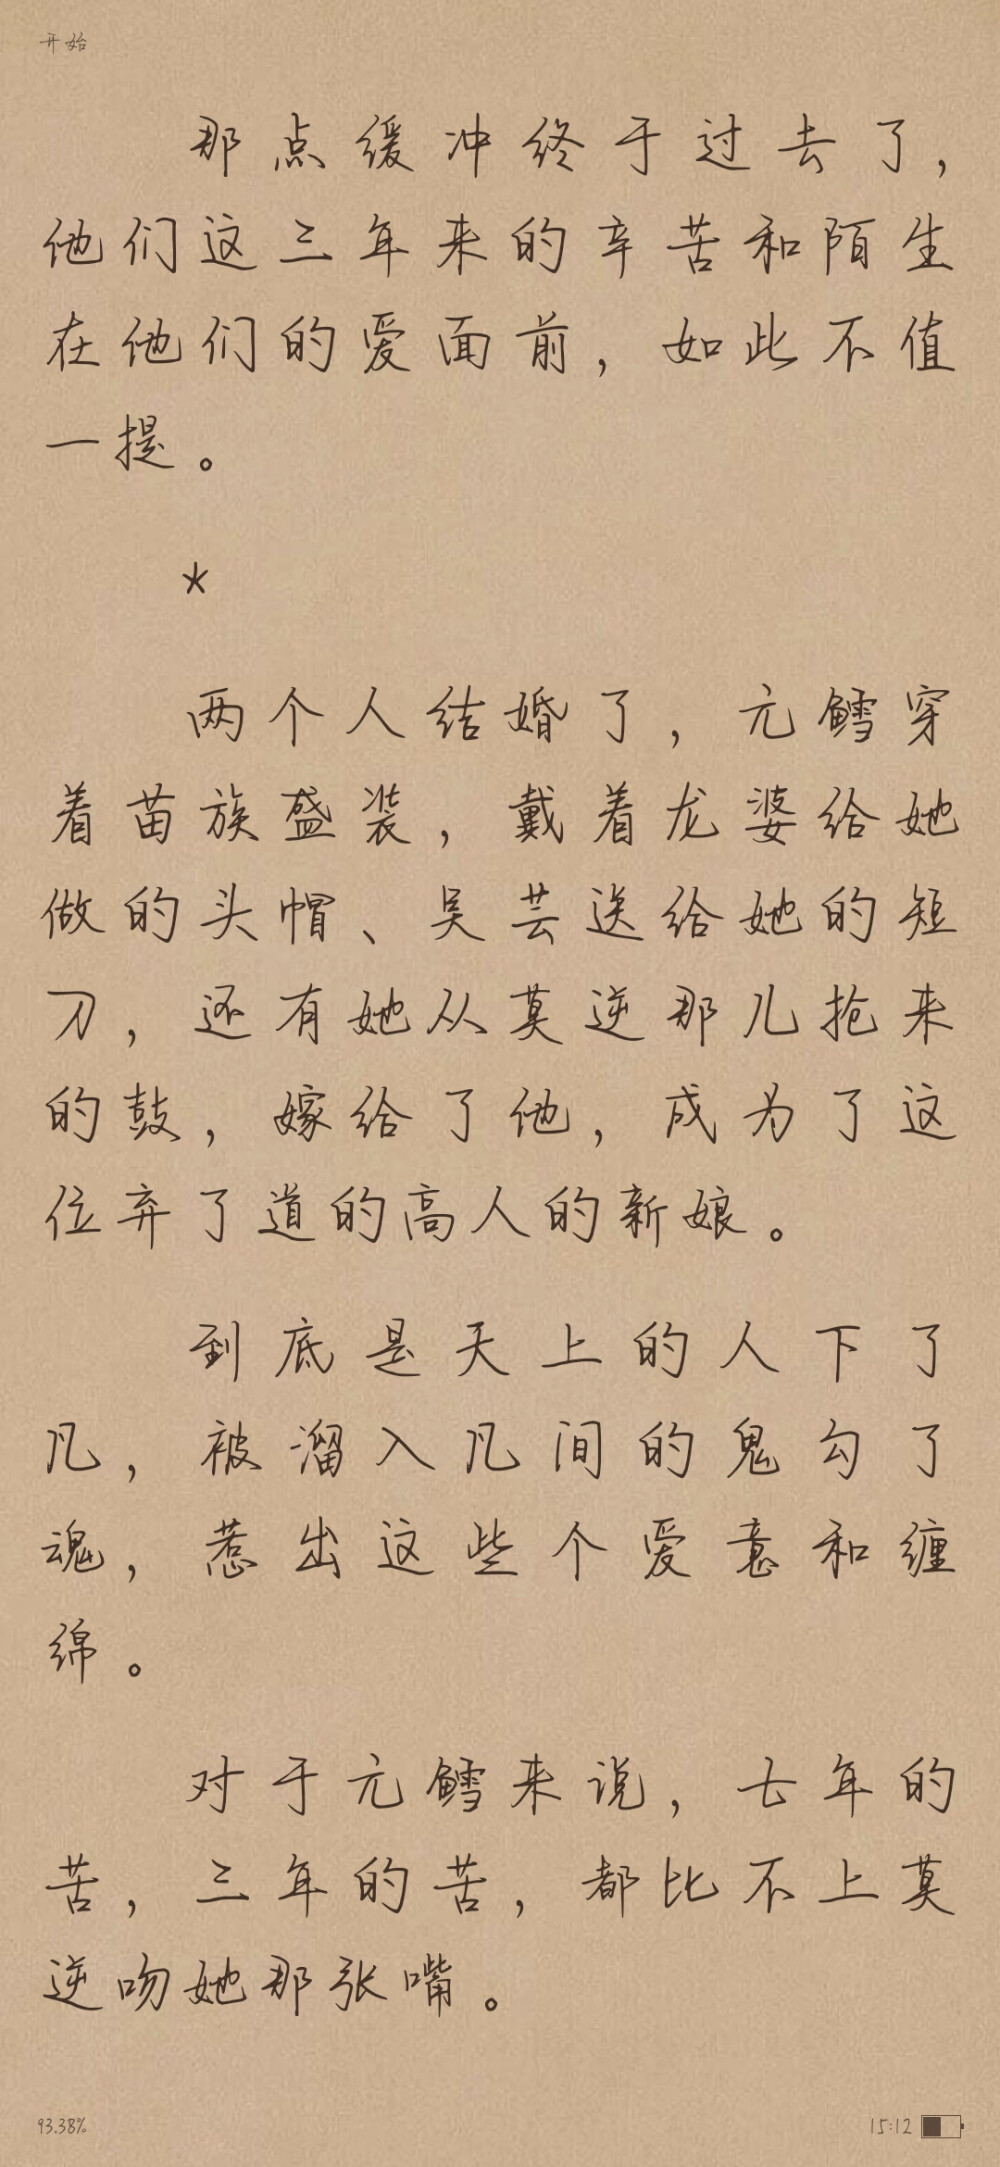 开始
那点缓冲终于过去了，
他们这三年来的辛苦和陌生
在他们的爱面前，如此不值
一提。
*
两个人结婚了，亓鳕穿
着苗族盛装，戴着龙婆给她
做的头帽、吴芸送给她的短
刀，还有她从莫逆那儿抢来
的鼓，嫁给了他，成为了这
位弃了道的高人的新娘。
到底是天上的人下了
凡，被溜入凡间的鬼勾了
魂，惹出这些个爱意和缠
绵。
对于亓鳕来说，七年的
苦，三年的苦，都比不上莫
逆吻她那张嘴。
93.38%
15:12